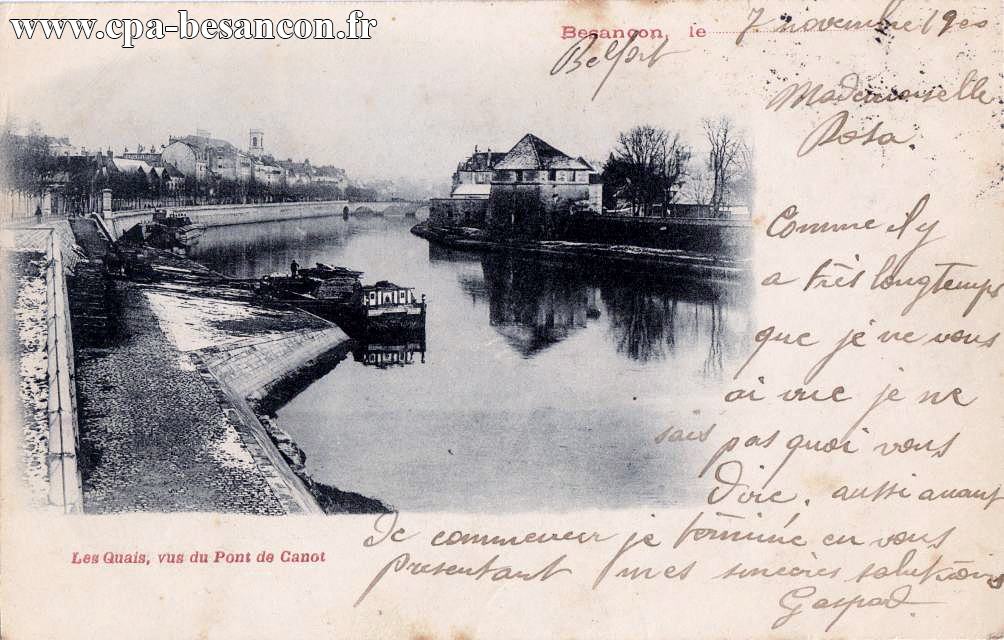 www.cpa-besançon.fr
Besançon, le 7 novembre 1900
Belfort
Mademoiselle
Rosa.
Comme il y
a très longtemps
que je ne vous
ai vue je ne
sais pas quoi vous
dire. aussi avant
De commencer je términé en vous
présentant mes sincères salutations
Gaspard
Les Quais, vus du Pont de Canot